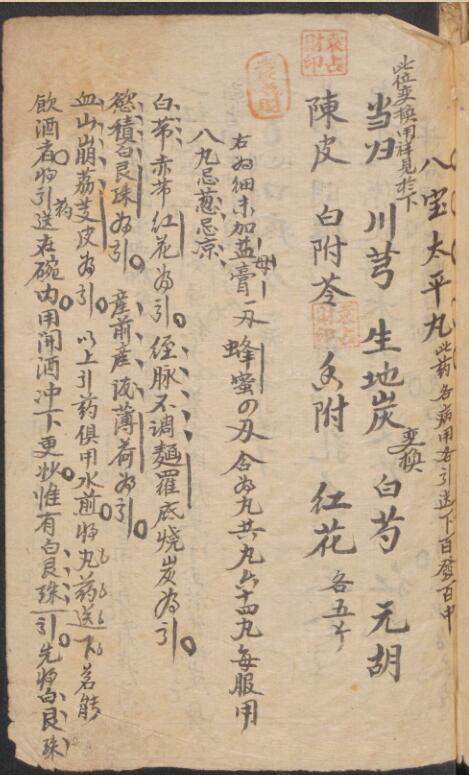 八宝太平丸 此药各病用各引送下百發百中
此位变换用祥見於下
当归 川芎 生地炭 变换 白芍 元胡
陳皮 白附苓 香附 红花 各五个
右为细末加益母膏一刄蜂蜜の刄合为丸共丸六十四丸每服用
八丸忌葱忌凉
白带赤带红花为引 経脉不调麵羅底烧炭为引
慾積白艮珠为引 産前産後薄荷为引
血山崩荔芰皮为引 以上引药俱用水煎将丸药送下若能
飲酒者将引药送在碗内用開酒冲下更妙惟有白艮珠引先将白艮珠